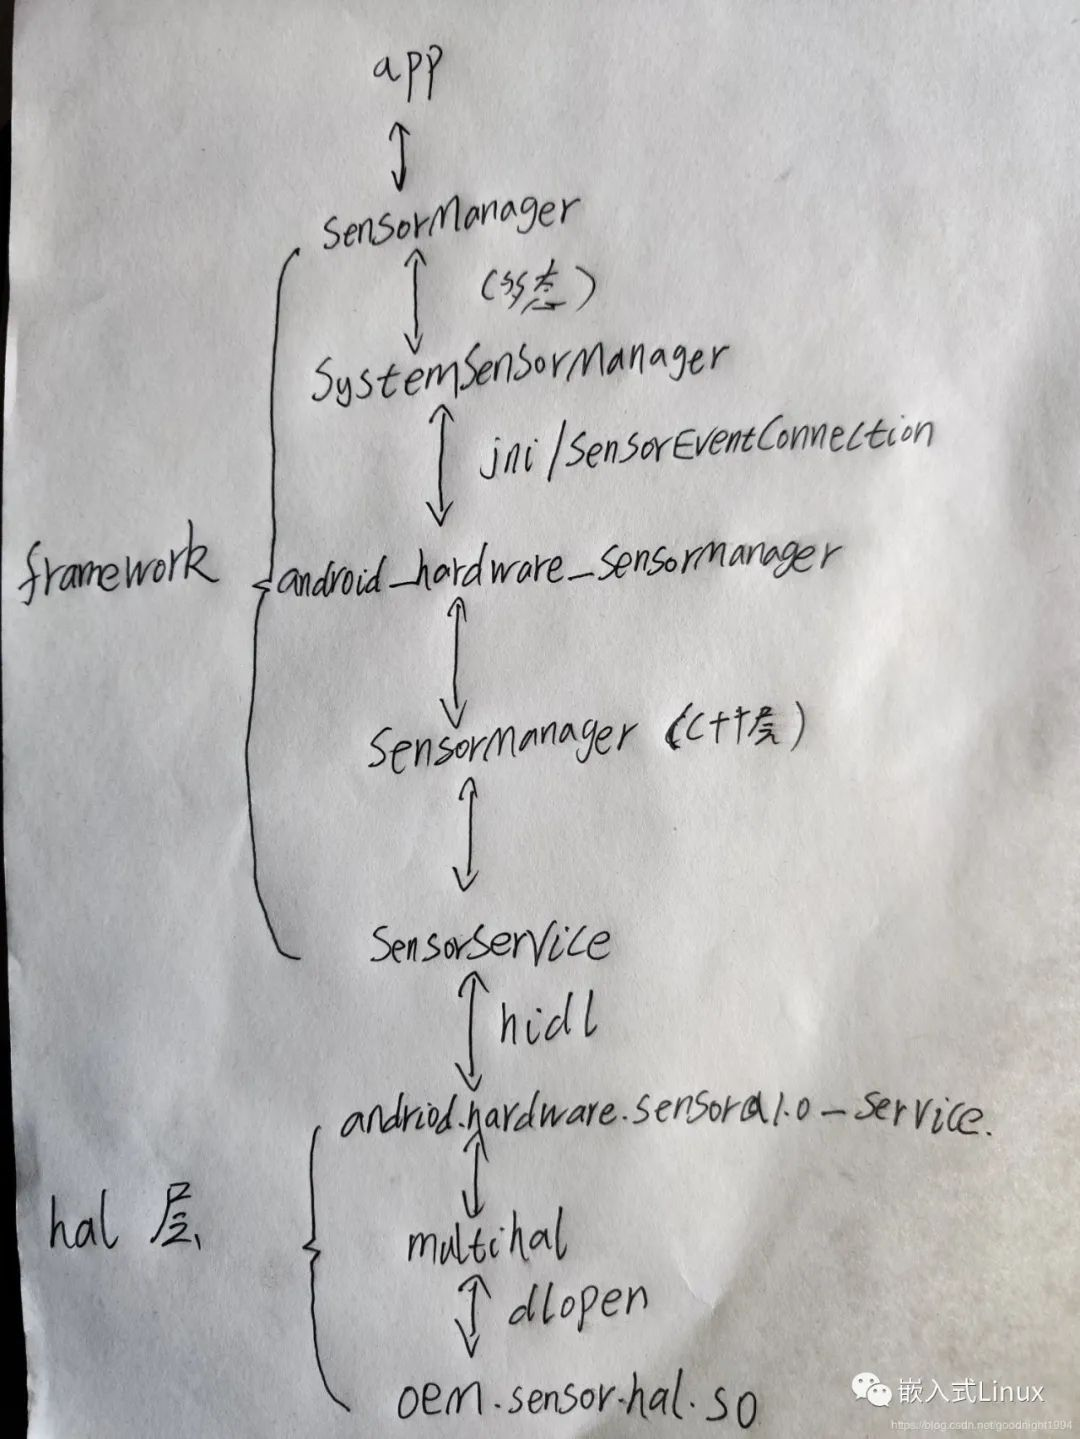 app
SensorManager
(多态)
SystemSensorManager
jni/SensorEventConnection
framework
android_hardware_SensorManager
SensorManager (C++层)
SensorService
hidl
andriod.hardware.sensor@1.0-service.
hal 层
multihal
dlopen
oem.sensor.hal.so
嵌入式Linux
https://blog.csdn.net/goodnight1994